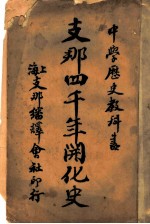 中學歷史教科書
支那四千年開化史
上海支那繙譯會社印行